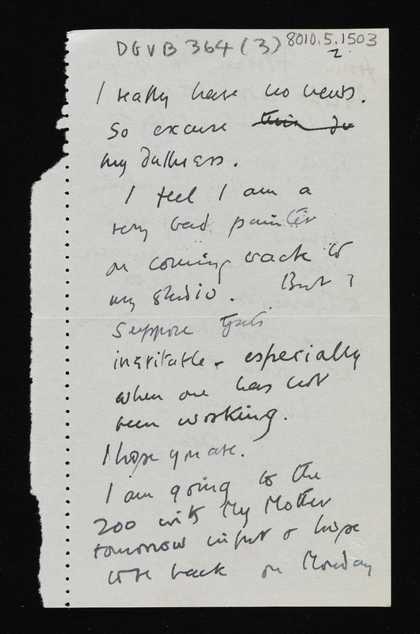 DGVB 364 (3) 8010.5.1503
2
I really have no news.
So excuse
my dullness.
I feel I am a
very bad painter
on coming back to
my studio. But I
suppose that's
inevitable – especially
when one has not
been working.
I hope you are.
I am going to the
zoo with my Mother
tomorrow night & hope
to be back on Monday